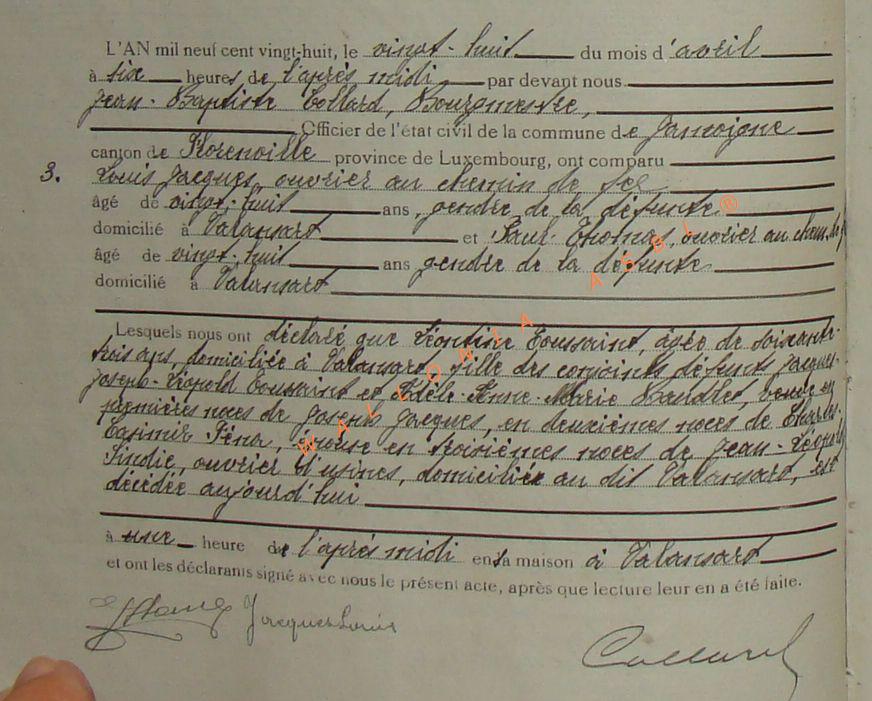 L'AN mil neuf cent vingt-huit, le vingt-huit du mois d'avril
à six heures de l'après midi par devant nous
Jean-Baptiste Collard, Bourgmestre,
Officier de l'état civil de la commune de Jamoigne
canton de Florenville province de Luxembourg, ont comparu
3. Louis Jacques, ouvrier au chemin de fer
âgé de vingt-huit ans, gendre de la défunte ®
domicilié à Valansart et Paul Thomas, ouvrier au chem. de f
âgé de vingt-huit ans gendre de la défunte
domicilié à Valansart
Lesquels nous ont déclaré que Léontine Toussaint, âgée de soixante-
trois ans, domiciliée à Valansart, fille des conjoints défunts Jacques-
Joseph-Léopold Toussaint et Adèle-Anne-Marie veuve en
premières noces de Joseph Jacques, en deuxièmes noces de Charles-
Casimir épouse en troisièmes noces de Jean-Léopold
Sindic, ouvrier d'usines, domiciliée au dit Valansart, est
décédée aujourd'hui
à une heure de l'après midi en sa maison à Valansart
et ont les déclarants signé avec nous le présent acte, après que lecture leur en a été faite.
Jacques Louis
Collard
WALEONEA ASBL